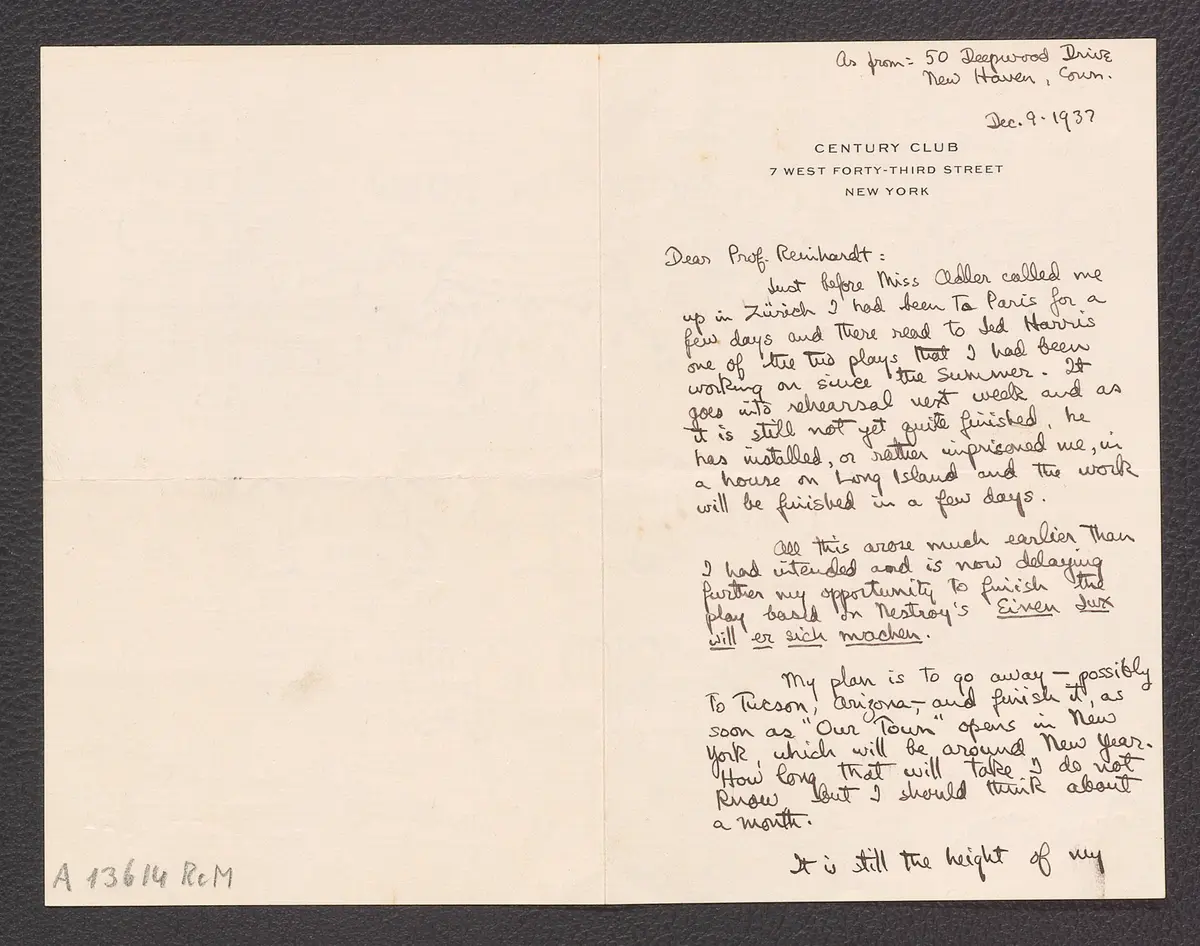 As from = 50 Deepwood Drive
New Haven, Conn.
Dec. 9 - 1937
CENTURY CLUB
7 WEST FORTY-THIRD STREET
NEW YORK
Dear Prof. Reinhardt:
Just before Miss Adler called me
up in Zürich I had been to Paris for a
few days and there read to Jed Harris
one of the two plays that I had been
working on since the Summer. It
goes into rehearsal next week and as
it is still not yet quite finished, he
has installed, or rather imprisoned me, in
a house on Long Island and the work
will be finished in a few days.
All this arose much earlier than
I had intended and is now delaying
further my opportunity to finish the
play based on Nestroy's Einen Jux
will er sich machen.
My plan is to go away — possibly
to Tucson, Arizona, — and finish it, as
soon as "Our Town" opens in New
York, which will be around New Year.
How long that will take I do not
know, but I should think about
a month.
It is still the height of my
A 13614 ReM